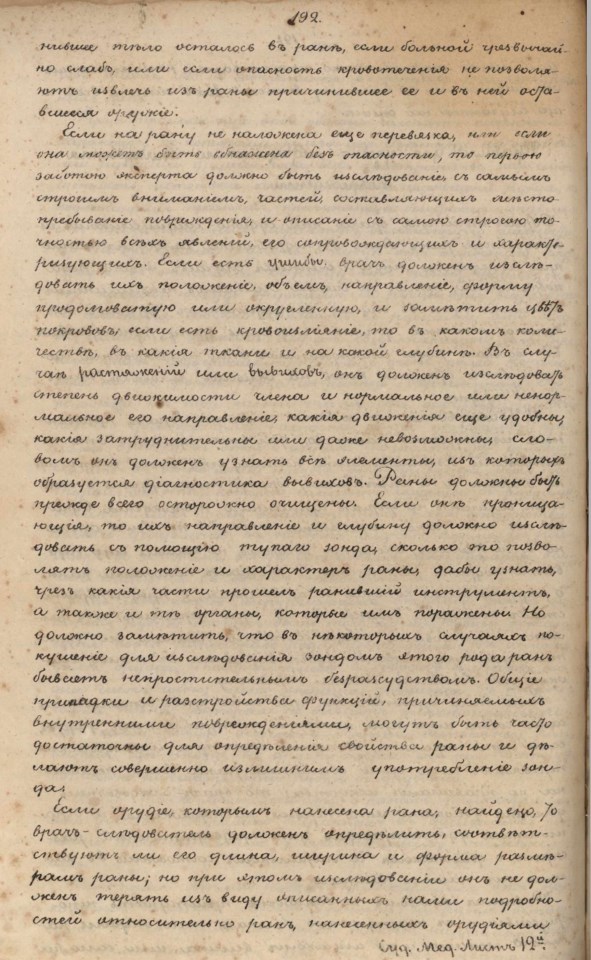 192.
нившее тѣло осталось въ ранѣ, если больной чрезвычай-
но слабъ, или если опасность кровотеченія не позволя-
ютъ извлечь изъ раны причинившее ее и въ ней оста-
вшееся оружіе.
Если на рану не наложена еще перевязка, или если
она можетъ быть обнажена безъ опасности, то первою
заботою эксперта должно быть изслѣдованіе, съ самымъ
строгимъ вниманіемъ, частей, составляющихъ мѣсто
пребываніе поврежденія, и описаніе съ самою строгою то-
чностью всѣхъ явленій, его сопровождающихъ и характе-
ризующихъ. Если есть ушибы врачъ долженъ изслѣ-
довать ихъ положеніе, объемъ, направленіе, форму
продолговатую или округленную, и замѣтить цвѣтъ
покрововъ; если есть кровоизліяніе, то въ какомъ коли-
чествѣ, въ какія ткани и на какой глубинѣ. Въ слу-
чаѣ растяженій или вывиховъ, онъ долженъ изслѣдовать
степень движимости члена и нормальное или ненор-
мальное его направленіе, какія движенія еще удобны,
какія затруднительны или даже невозможны, сло-
вомъ онъ долженъ узнать всѣ элементы, изъ которыхъ
образуется діагностика вывиховъ. Раны должны быть
прежде всего осторожно очищены. Если онѣ проница-
ющія, то ихъ направленіе и глубину должно изслѣ-
довать съ помощію тупаго зонда, сколько то позво-
лятъ положеніе и характеръ раны, дабы узнать,
чрезъ какія части прошелъ ранившій инструментъ,
а также и тѣ органы, которые имъ поражены. Но
должно замѣтить, что въ нѣкоторыхъ случаяхъ по-
кушеніе для изслѣдованія зондомъ этого рода ранъ
бываетъ непростительнымъ безразсудствомъ. Общіе
припадки и разстройства функцій, причиняемыхъ
внутренними поврежденіями, могутъ быть часто
достаточны для опредѣленія свойства раны и дѣ-
лаютъ совершенно излишнимъ употребленіе зон-
да.
Если орудіе, которымъ нанесена рана, найдено, то
врачъ-слѣдователь долженъ опредѣлить, соотвѣт-
ствуютъ ли его длина, ширина и форма размѣ-
рамъ раны; но при этомъ изслѣдованіи онъ не дол-
женъ терять изъ виду описанныхъ нами подробно-
стей относительно ранъ, нанесенныхъ орудіями
Суд. Мед. Листъ 12й